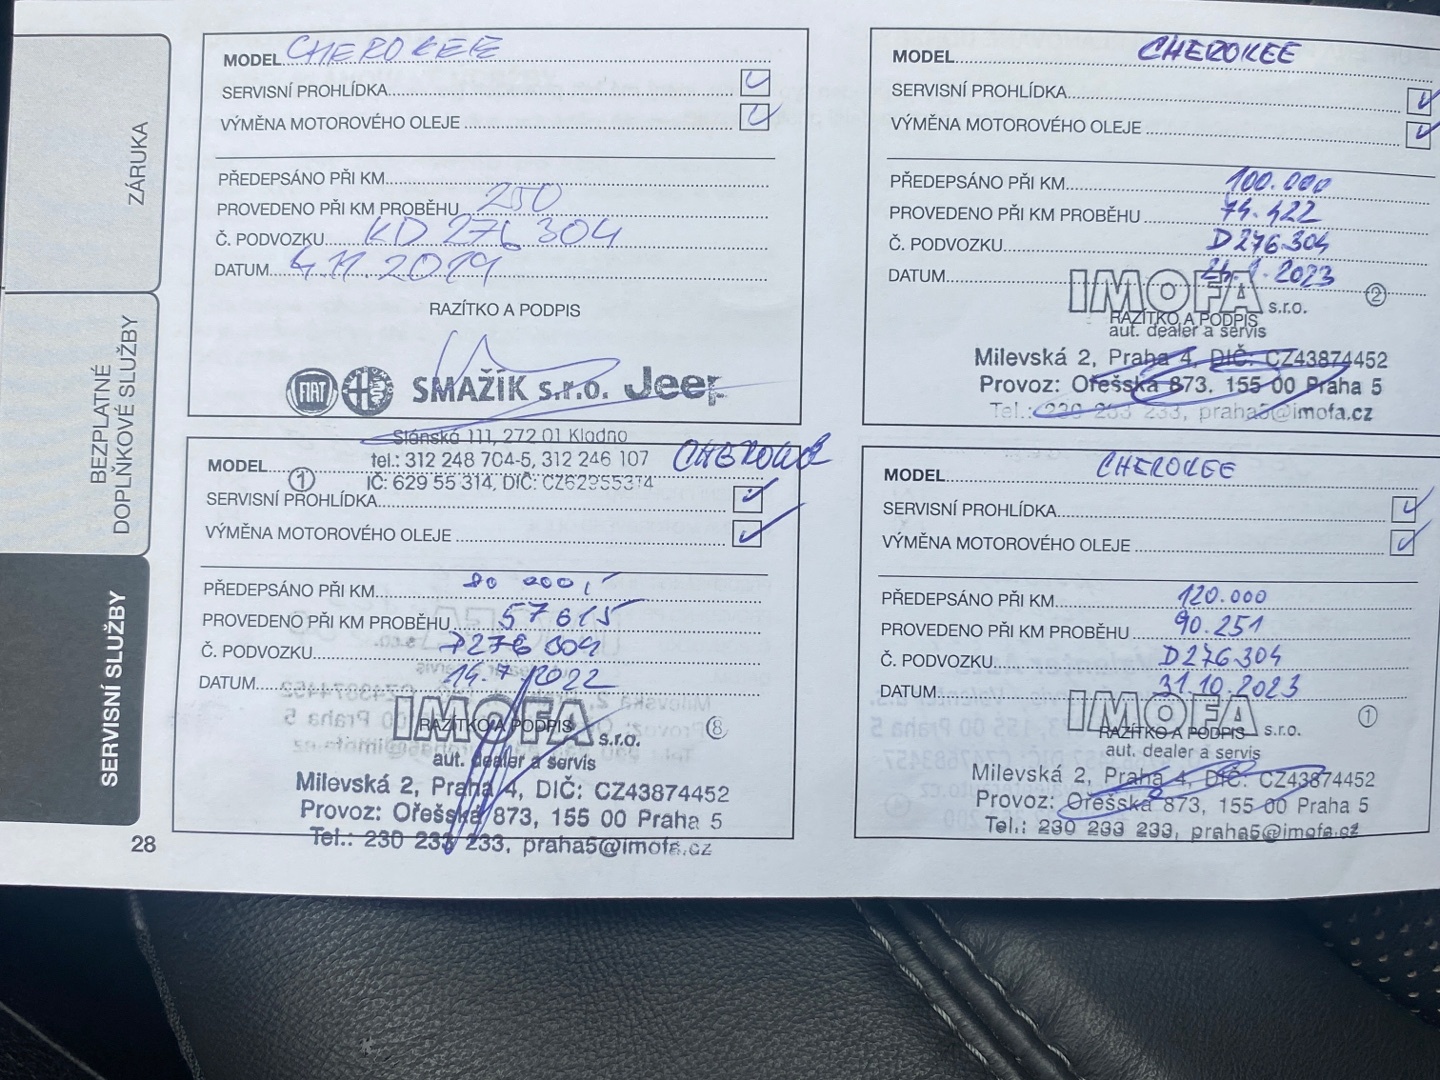 ZÁRUKA
BEZPLATNÉ
DOPLŇKOVÉ SLUŽBY
SERVISNÍ SLUŽBY
28
MODEL CHEROKEE
SERVISNÍ PROHLÍDKA
VÝMĚNA MOTOROVÉHO OLEJE
PŘEDEPSÁNO PŘI KM
PROVEDENO PŘI KM PROBĚHU 250
Č. PODVOZKU KD 276 304
DATUM 4.11.2019
RAZÍTKO A PODPIS
FIAT SMAŽÍK s.r.o. Jeep
Slánská 111, 272 01 Kladno
tel.: 312 248 704-5, 312 246 107
IČ: 629 55 314, DIČ: CZ62955314
1
MODEL CHEROKEE
SERVISNÍ PROHLÍDKA
VÝMĚNA MOTOROVÉHO OLEJE
PŘEDEPSÁNO PŘI KM 80 000,-
PROVEDENO PŘI KM PROBĚHU 57 615
Č. PODVOZKU D276 304
DATUM 14.7.2022
IMOFA s.r.o. 8
RAZÍTKO A PODPIS
aut. dealer a servis
Milevská 2, Praha 4, DIČ: CZ43874452
Provoz: Ořešská 873, 155 00 Praha 5
Tel.: 230 233 233, praha5@imofa.cz
MODEL CHEROKEE
SERVISNÍ PROHLÍDKA
VÝMĚNA MOTOROVÉHO OLEJE
PŘEDEPSÁNO PŘI KM 100.000
PROVEDENO PŘI KM PROBĚHU 74.422
Č. PODVOZKU D276304
DATUM 1.2023
IMOFA s.r.o. 2
RAZÍTKO A PODPIS
aut. dealer a servis
Milevská 2, Praha 4, DIČ: CZ43874452
Provoz: Ořešská 873. 155 00 Praha 5
Tel.: 230 233 233, praha5@imofa.cz
MODEL CHEROKEE
SERVISNÍ PROHLÍDKA
VÝMĚNA MOTOROVÉHO OLEJE
PŘEDEPSÁNO PŘI KM 120.000
PROVEDENO PŘI KM PROBĚHU 90.251
Č. PODVOZKU D276304
DATUM 31.10.2023
IMOFA s.r.o. 1
RAZÍTKO A PODPIS
aut. dealer a servis
Milevská 2, Praha 4, DIČ: CZ43874452
Provoz: Ořešská 873, 155 00 Praha 5
Tel.: 230 233 233, praha5@imofa.cz